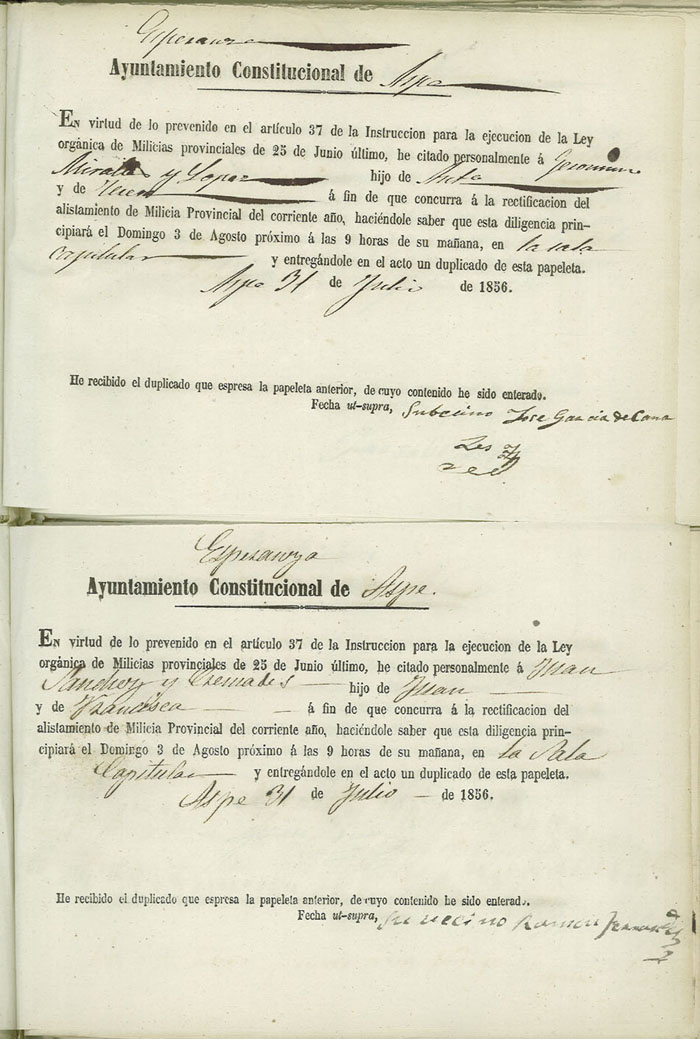 Esperanza
Ayuntamiento Constitucional de Aspe
En virtud de lo prevenido en el artículo 37 de la Instruccion para la ejecucion de la Ley
orgánica de Milicias provinciales de 25 de Junio último, he citado personalmente á Geronimo
Miralles y Lopez hijo de
y de á fin de que concurra á la rectificacion del
alistamiento de Milicia Provincial del corriente año, haciéndole saber que esta diligencia prin-
cipiará el Domingo 3 de Agosto próximo á las 9 horas de su mañana, en la sala
capitular y entregándole en el acto un duplicado de esta papeleta.
Aspe 31 de Julio de 1856.
He recibido el duplicado que espresa la papeleta anterior, de cuyo contenido he sido enterado.
Fecha ut-supra, Subecino Jose Garcia de
Esperanza
Ayuntamiento Constitucional de Aspe.
En virtud de lo prevenido en el artículo 37 de la Instruccion para la ejecucion de la Ley
orgánica de Milicias provinciales de 25 de Junio último, he citado personalmente á Juan
Sanchez y Cremades hijo de Juan
y de Francisca á fin de que concurra á la rectificacion del
alistamiento de Milicia Provincial del corriente año, haciéndole saber que esta diligencia prin-
cipiará el Domingo 3 de Agosto próximo á las 9 horas de su mañana, en la Sala
Capitular y entregándole en el acto un duplicado de esta papeleta.
Aspe 31 de Julio de 1856.
He recibido el duplicado que espresa la papeleta anterior, de cuyo contenido he sido enterado.
Fecha ut-supra, Su vecino Ramon